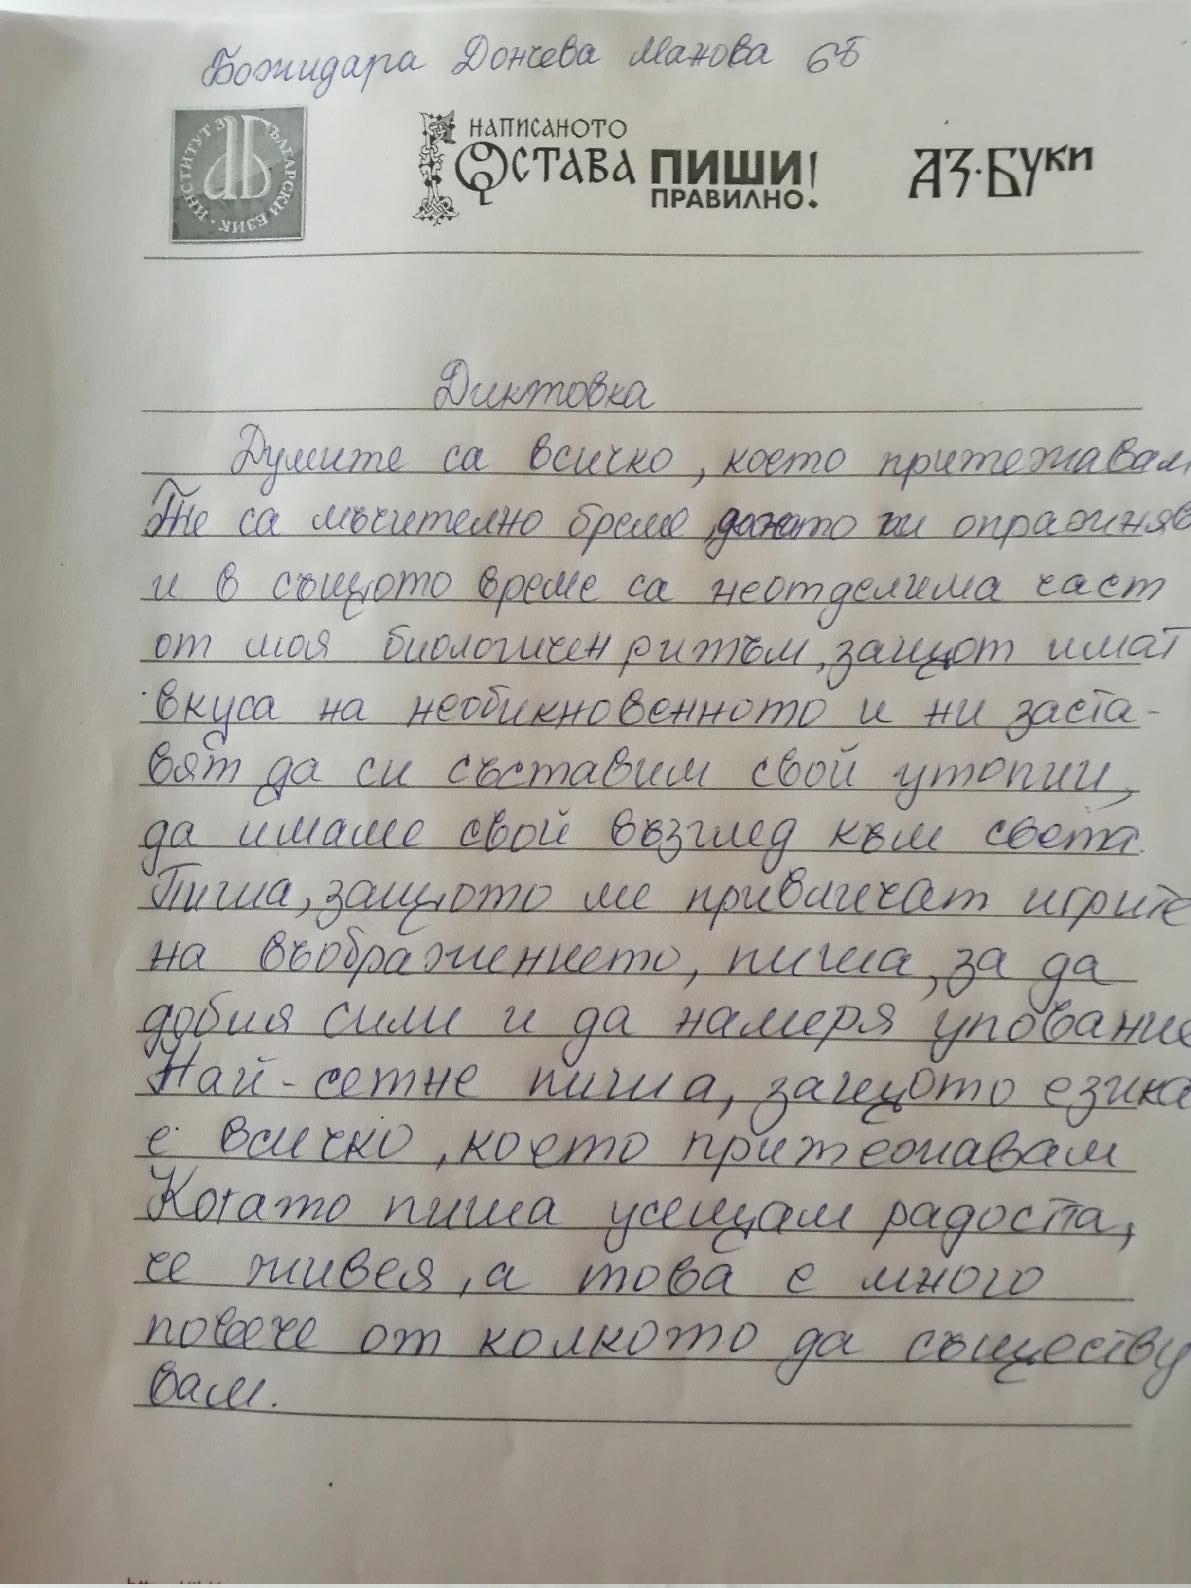 Божидара Дончева Манова 6Б
ИНСТИТУТ ЗА БЪЛГАРСКИ ЕЗИК
НАПИСАНОТО
ОСТАВА ПИШИ
ПРАВИЛНО!
АЗ·БУКИ
Диктовка
Думите са всичко, което притежавам
Те са мъчително бреме, докато ги опразня
и в същото време са неотделима част
от моя биологичен ритъм, защот имат
вкуса на необикновенното и ни заста-
вят да си съставим свой утопии,
да имаме свой възглед към света.
Пиша, защото ме привличат игрите
на въображението, пиша, за да
добия сили и да намеря упование
Най-сетне пиша, защото езика
е всичко, което притежавам
Когато пиша усещам радостта,
че живея, а това е много
повече от колкото да съществу
вам.